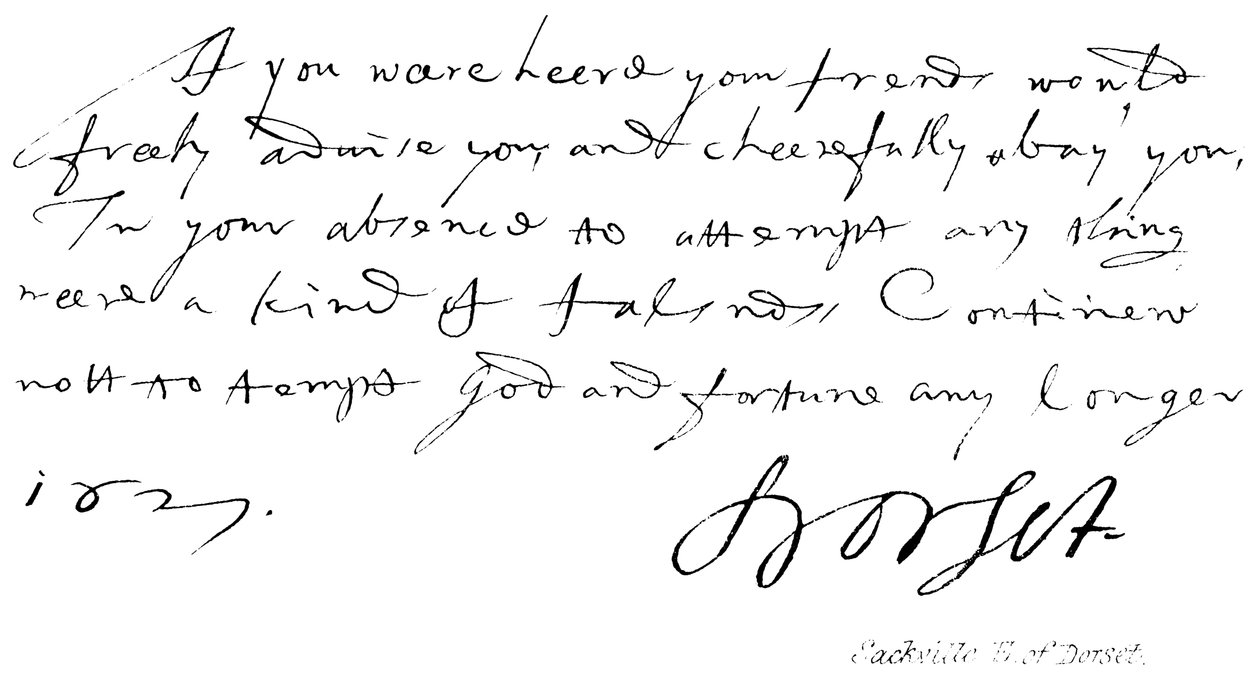 If you ware heere your frends would
freely aduise you, and cheerefully obay you,
In your absence to attempt any thing
weere a kind of falsnds, Continew
nott to tempt god and fortune any longer
Dorset.
Sackville E. of Dorset.